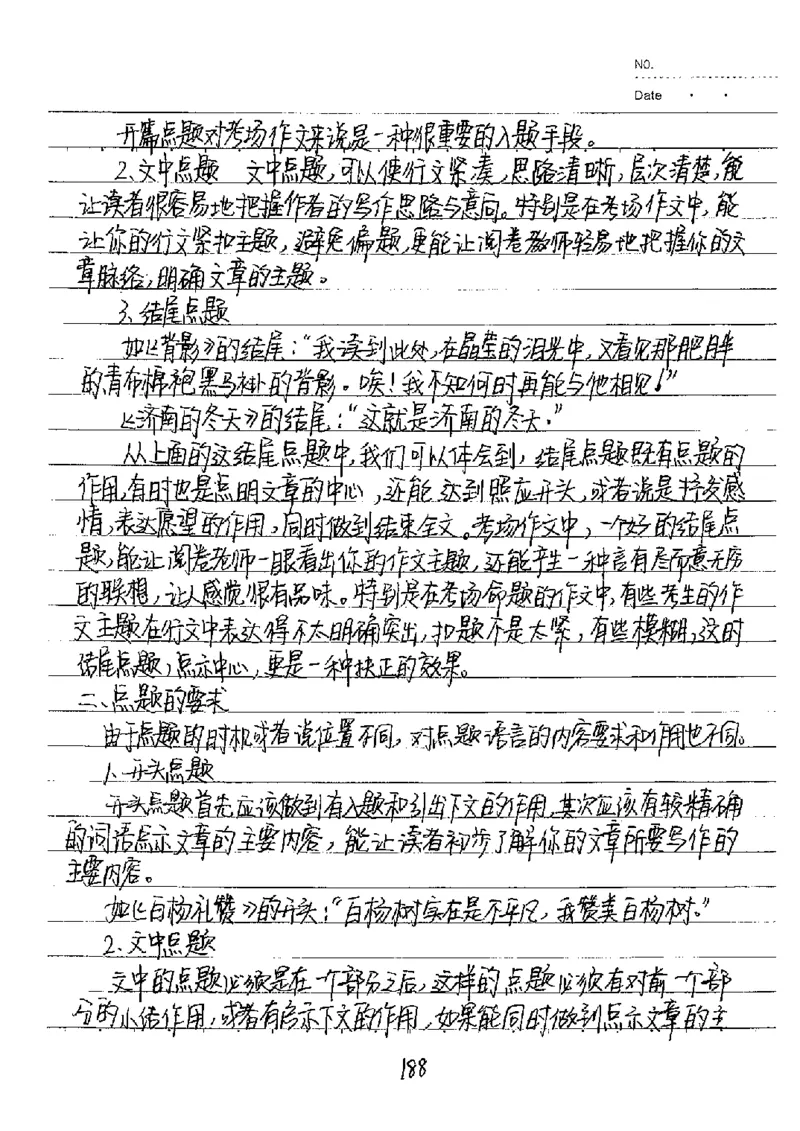 NO.
Date
开篇点题对考场作文来说是一种很重要的入题手段。
2、文中点题 文中点题,可以使行文紧凑,思路清晰,层次清楚,能
让读者很容易地把握作者的写作思路与意向。特别是在考场作文中,能
让你的行文紧扣主题,避免偏题,更能让阅卷教师轻易地把握你的文
章脉络,明确文章的主题。
3、结尾点题
如《背影》的结尾:“我读到此处,在晶莹的泪光中,又看见那肥胖
的青布棉袍黑马褂的背影。唉!我不知何时再能与他相见!”
《济南的冬天》的结尾:“这就是济南的冬天。”
从上面的这结尾点题中,我们可以体会到,结尾点题既有点题的
作用,有时也是点明文章的中心,还能达到照应开头,或者说是抒发感
情,表达愿望的作用,同时做到结束全文。考场作文中,一个好的结尾点
题,能让阅卷老师一眼看出你的作文主题,还能产生一种言有尽而意无穷
的联想,让人感觉很有品味。特别是在考场命题的作文中,有些考生的作
文主题在行文中表达得不太明确突出,扣题不是太紧,有些模糊,这时
结尾点题,点示中心,更是一种扶正的效果。
二、点题的要求
由于点题的时机或者说位置不同,对点题语言的内容要求和作用也不同。
1、开头点题
开头点题首先应该做到有入题和引出下文的作用,其次应该有较精确
的词语点示文章的主要内容,能让读者初步了解你的文章所要写作的
主要内容。
如《白杨礼赞》的开头:“白杨树实在是不平凡,我赞美白杨树。”
2、文中点题
文中的点题必须是在一个部分之后,这样的点题必须有对前一个部
分的小结作用,或者有启示下文的作用,如果能同时做到点示文章的主
188